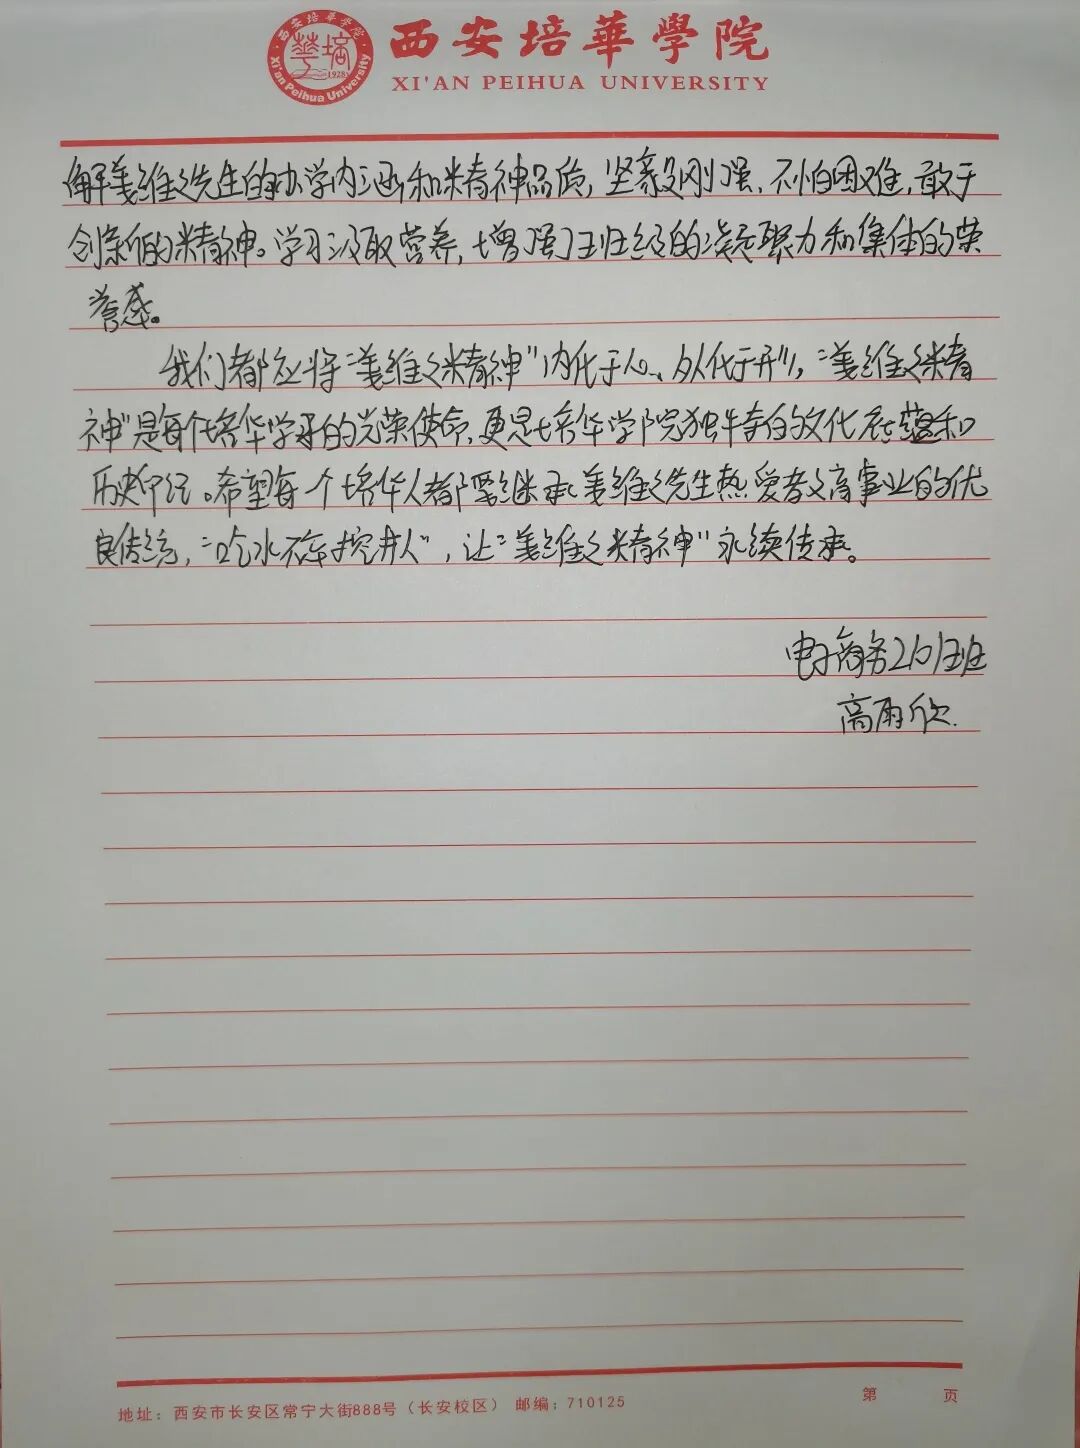 西安培華學院
XI'AN PEIHUA UNIVERSITY
西安培華學院
華培
1928
Xi'an Peihua University
解姜维之先生的办学内涵和精神品质，坚毅刚强、不怕困难，敢于
创新的精神。学习汲取营养，增强了班级的凝聚力和集体的荣
誉感。
我们都应将“姜维之精神”内化于心、外化于形，“姜维之精
神”是每个培华学子的光荣使命，更是培华学院独特的文化底蕴和
历史印记。希望每一个培华人都要继承姜维之先生热爱教育事业的优
良传统，“吃水不忘挖井人”，让“姜维之精神”永续传承。
电子商务2101班
高雨欣
地址：西安市长安区常宁大街888号（长安校区） 邮编：710125
第 页